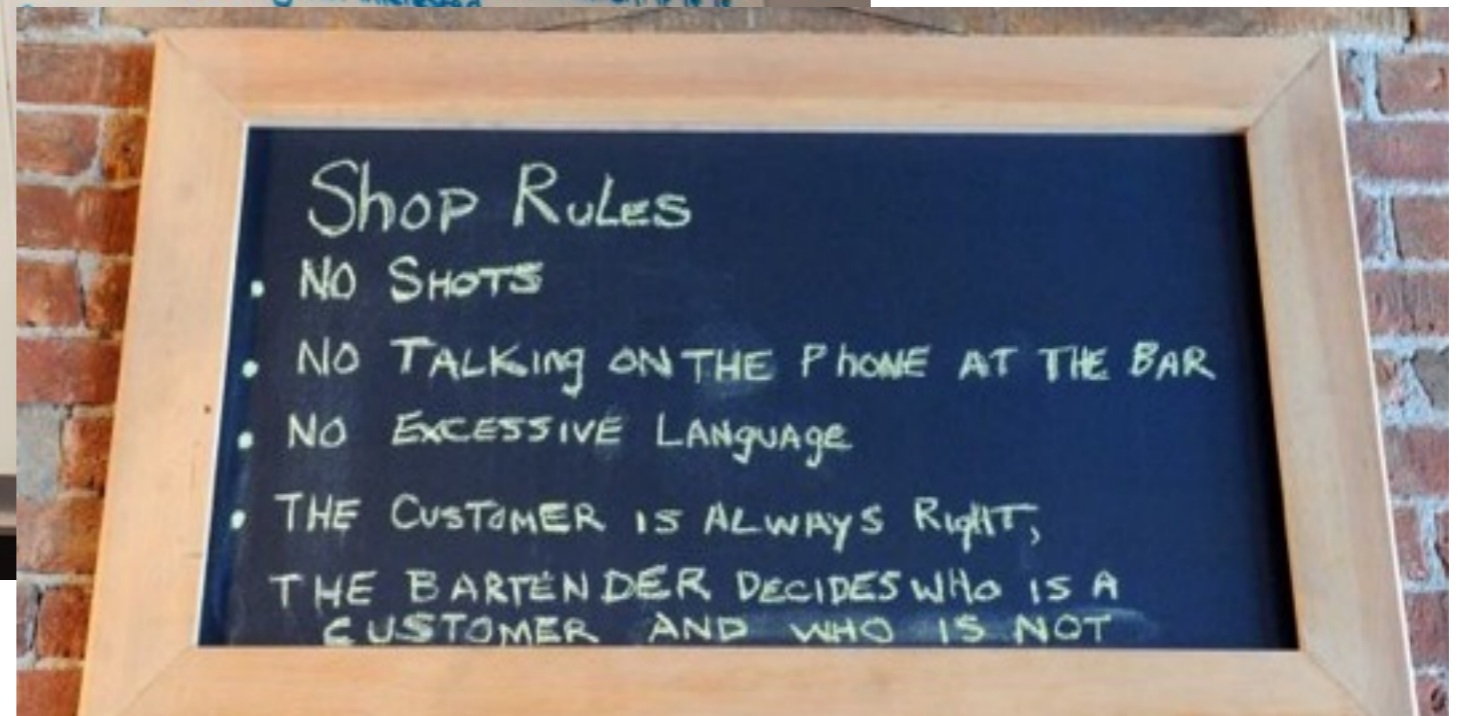 Shop Rules
• No Shots
• No Talking on the Phone at the Bar
• No Excessive Language
• The Customer is Always Right,
The Bartender Decides Who is a
Customer and Who is Not